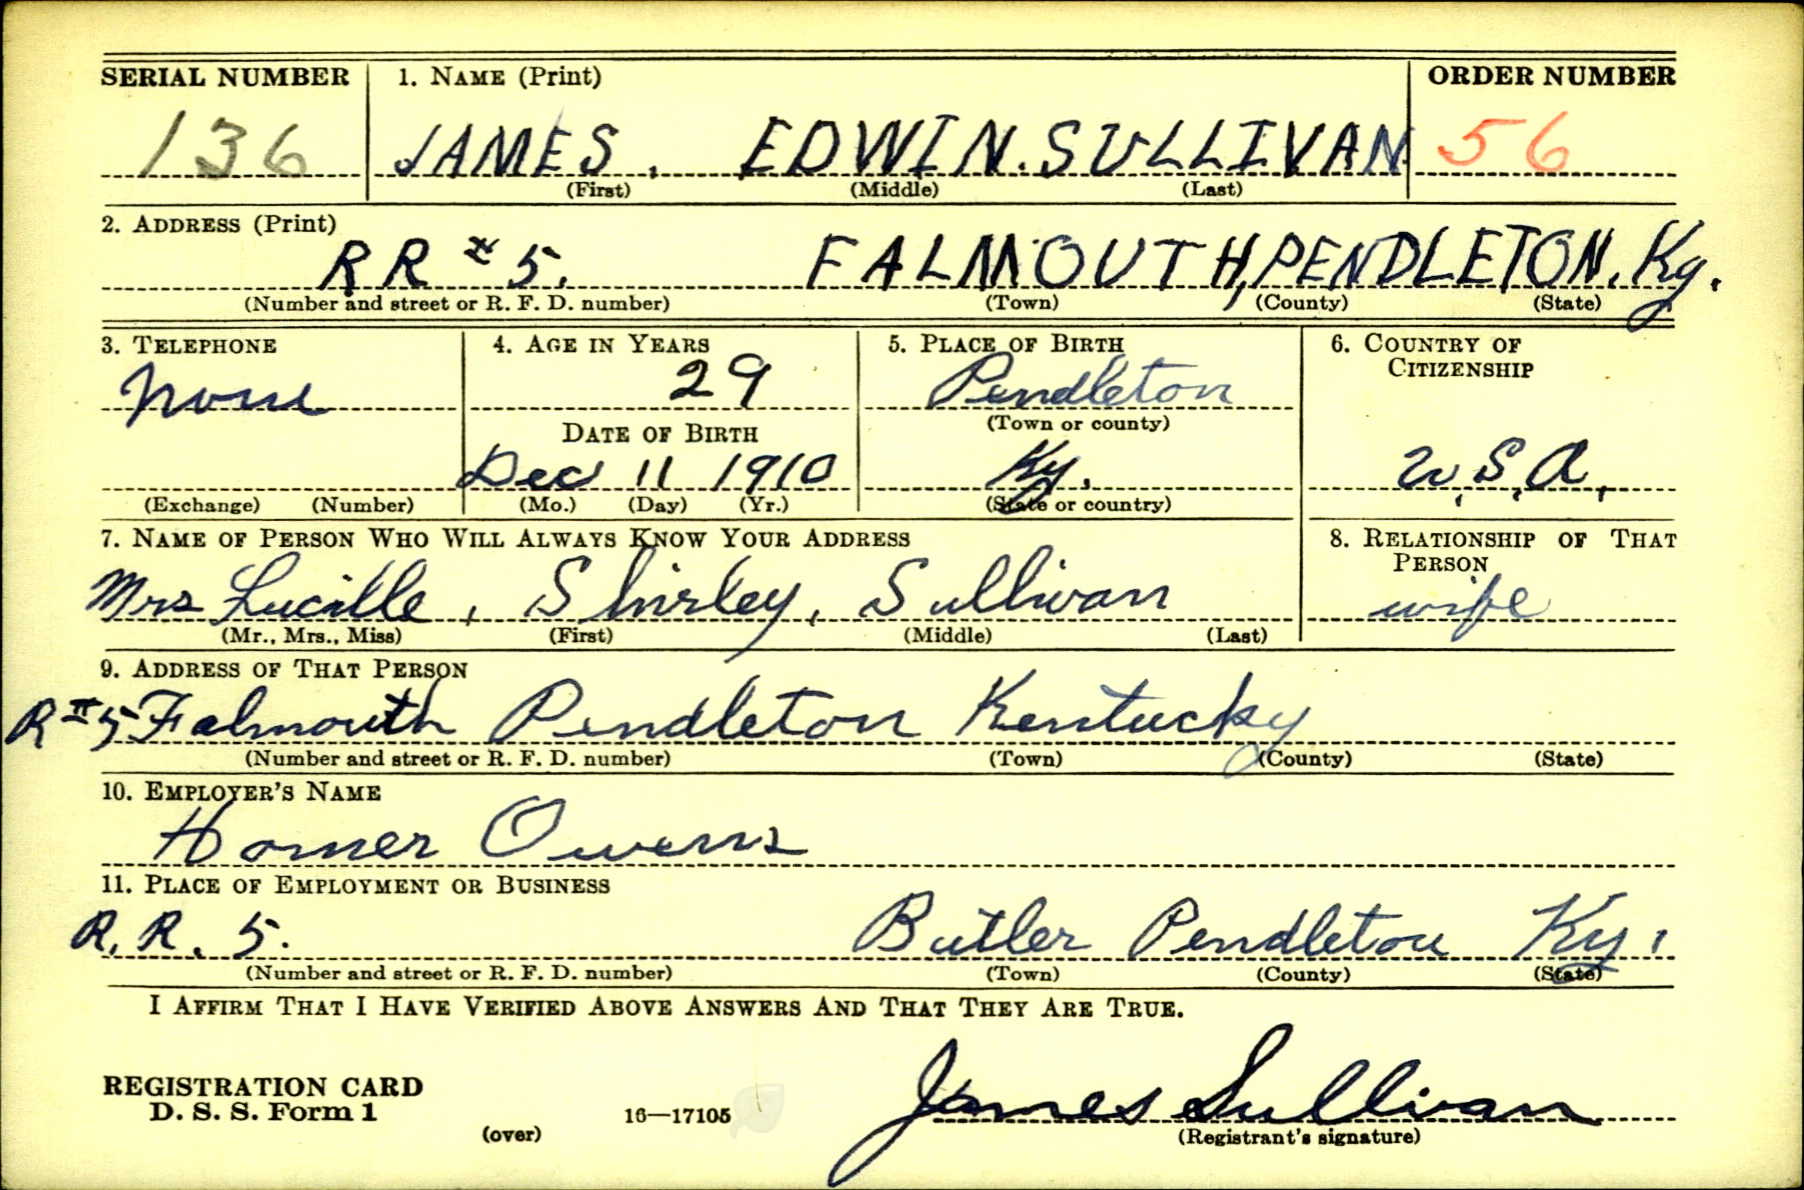 SERIAL NUMBER 1. NAME (Print) ORDER NUMBER
136 JAMES. EDWIN. SULLIVAN 56
(First) (Middle) (Last)
2. ADDRESS (Print)
RR # 5. FALMOUTH, PENDLETON. Ky.
(Number and street or R. F. D. number) (Town) (County) (State)
3. TELEPHONE 4. AGE IN YEARS 5. PLACE OF BIRTH 6. COUNTRY OF
CITIZENSHIP
None 29 Pendleton
(Town or county)
DATE OF BIRTH
Dec 11 1910 Ky. U.S.A.
(Exchange) (Number) (Mo.) (Day) (Yr.) (State or country)
7. NAME OF PERSON WHO WILL ALWAYS KNOW YOUR ADDRESS 8. RELATIONSHIP OF THAT
PERSON
Mrs Lucille, Shirley, Sullivan wife
(Mr., Mrs., Miss) (First) (Middle) (Last)
9. ADDRESS OF THAT PERSON
R#5 Falmouth Pendleton Kentucky
(Number and street or R. F. D. number) (Town) (County) (State)
10. EMPLOYER'S NAME
Homer Owens
11. PLACE OF EMPLOYMENT OR BUSINESS
R. R. 5. Butler Pendleton Ky.
(Number and street or R. F. D. number) (Town) (County) (State)
I AFFIRM THAT I HAVE VERIFIED ABOVE ANSWERS AND THAT THEY ARE TRUE.
REGISTRATION CARD
D. S. S. Form 1 16—17105 James Sullivan
(over) (Registrant's signature)